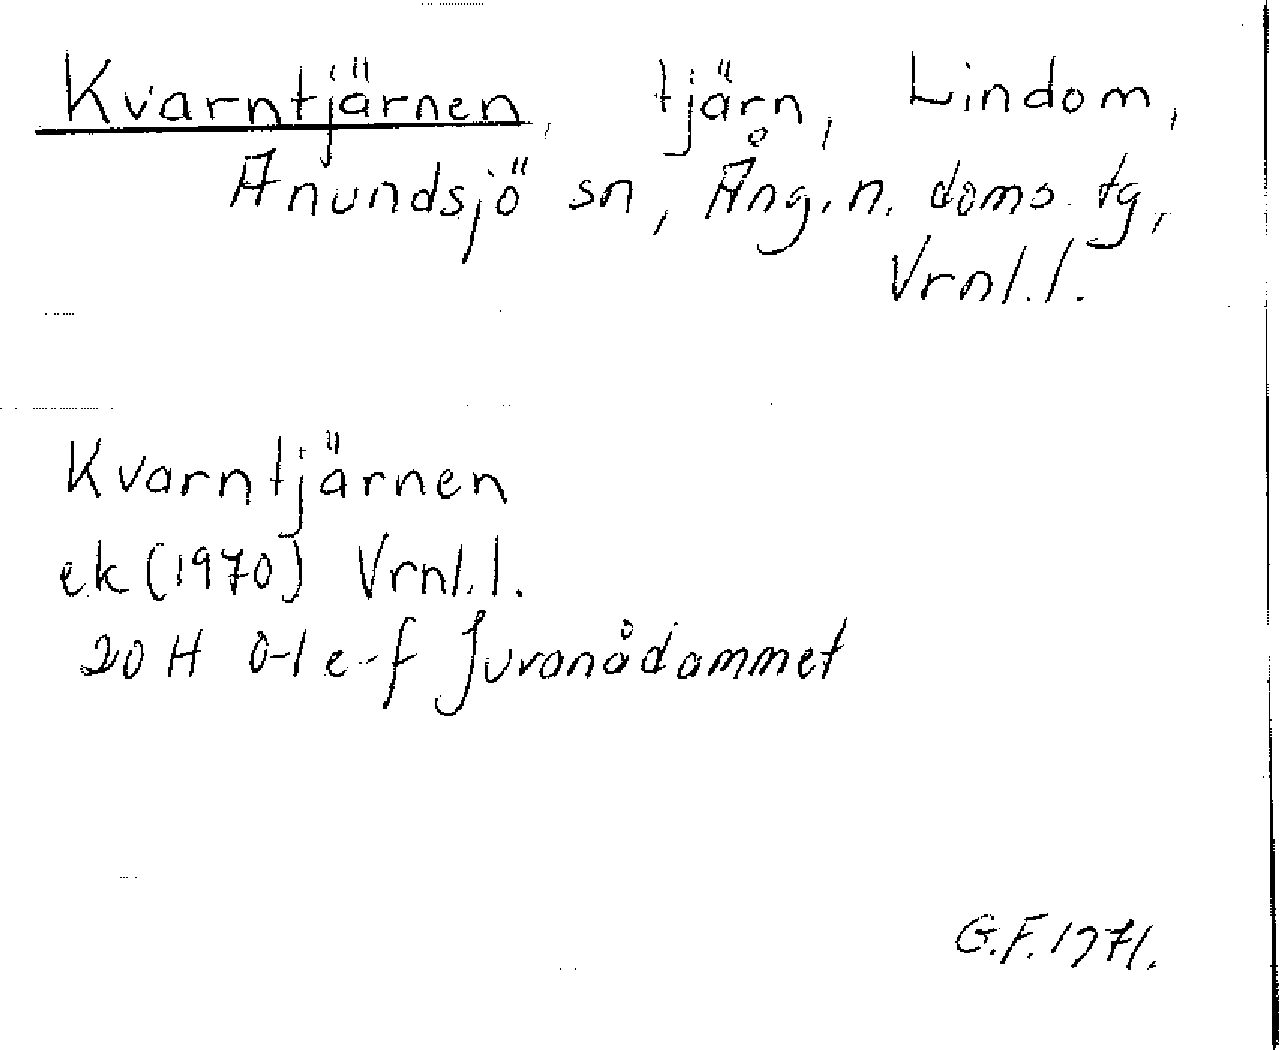 Kvarntjärnen, tjärn, Lindom,
Anundsjö sn, Ång. n. doms. tg,
Vrnl. l.
Kvarntjärnen
ek (1970) Vrnl. l.
20 H 0-1 e-f Juvanådammet
G.F. 1971.